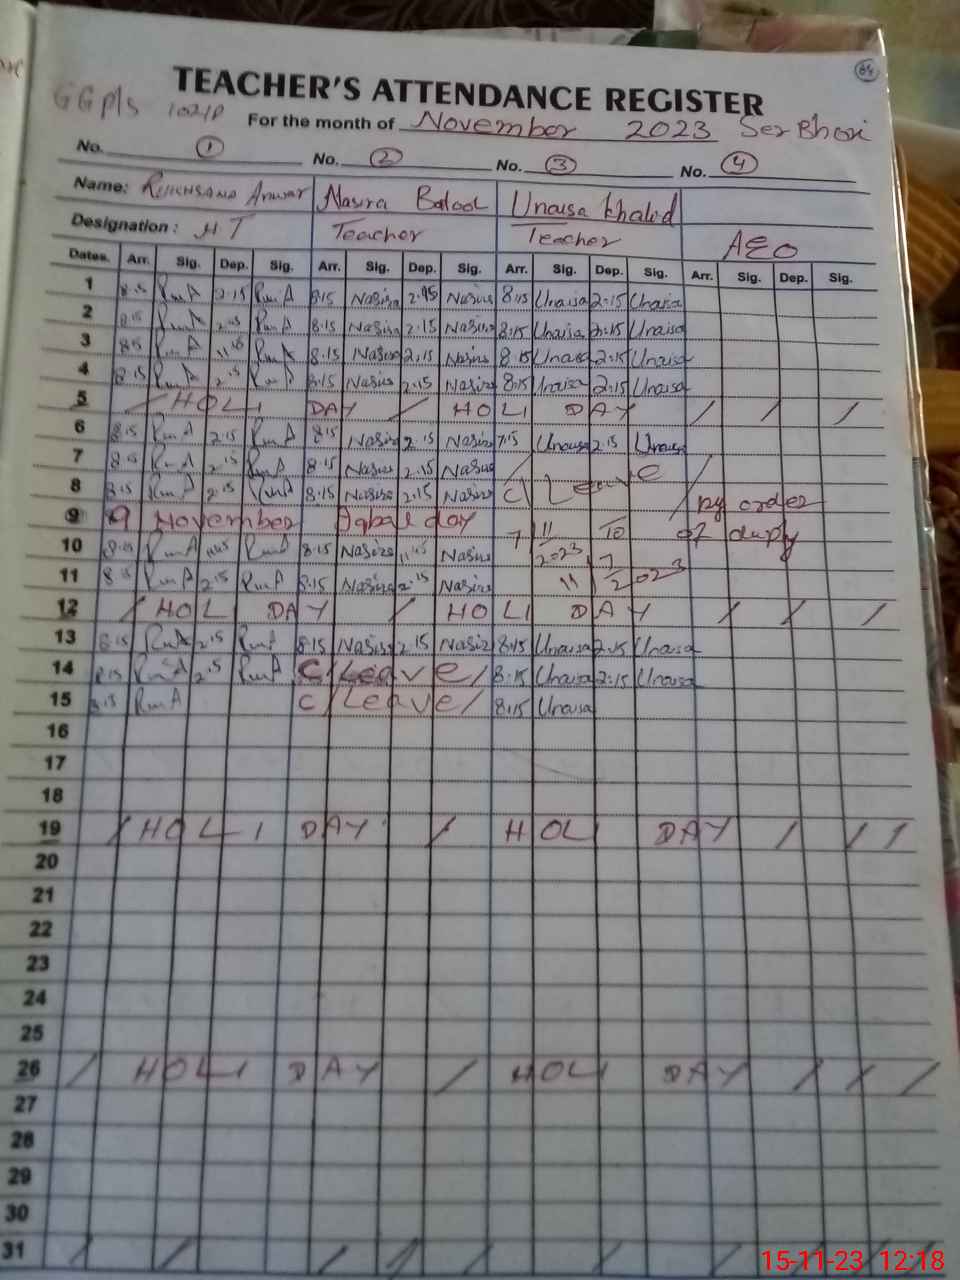 84
TEACHER'S ATTENDANCE REGISTER
GGP/S 102/P For the month of November 2023 Ser Bhori
No. 1 No. 2 No. 3 No. 4
Name: Rukhsana Anwar Nasira Batool Unaisa Khalid
Designation: HT Teacher Teacher AEO
Dates. Arr. Sig. Dep. Sig. Arr. Sig. Dep. Sig. Arr. Sig. Dep. Sig. Arr. Sig. Dep. Sig.
1 8.15 RmA 2.15 RmA 8.15 Nasira 2.45 Nasira 8.15 Unaisa 2.15 Unaisa
2 8.15 RmA 2.15 RmA 8.15 Nasira 2.15 Nasira 8.15 Unaisa 2.15 Unaisa
3 8.15 RmA RmA 8.15 Nasira 2.15 Nasira 8.15 Unaisa 2.15 Unaisa
4 8.15 RmA 2.15 RmA 8.15 Nasira 2.15 Nasira 8.15 Unaisa 2.15 Unaisa
5 / HOLI DAY / HOLI DAY / / /
6 8.15 RmA 2.15 RmA 8.15 Nasira 2.15 Nasira 7.15 Unaisa 2.15 Unaisa
7 8.15 RmA 2.15 RmA 8.15 Nasira 2.15 Nasira
8 8.15 RmA 2.15 RmA 8.15 Nasira 2.15 Nasira C/ Leave / by order
9 9 November Iqbal day 7/11/2023 To of
10 8.15 RmA 11.45 RmA 8.15 Nasira 11.45 Nasira
11 8.15 RmA 2.15 RmA 8.15 Nasira 2.15 Nasira 11/2023
12 / HOLI DAY / HOLI DAY / / /
13 8.15 RmA 2.15 RmA 8.15 Nasira 2.15 Nasira 8.15 Unaisa 2.15 Unaisa
14 8.15 RmA 2.15 RmA C/ Leave / 8.15 Unaisa 2.15 Unaisa
15 8.15 RmA C/ Leave / 8.15 Unaisa
16
17
18
19 / HOLI DAY / HOLI DAY / / /
20
21
22
23
24
25
26 / HOLI DAY / HOLI DAY / / /
27
28
29
30
31
15-11-23 12:18